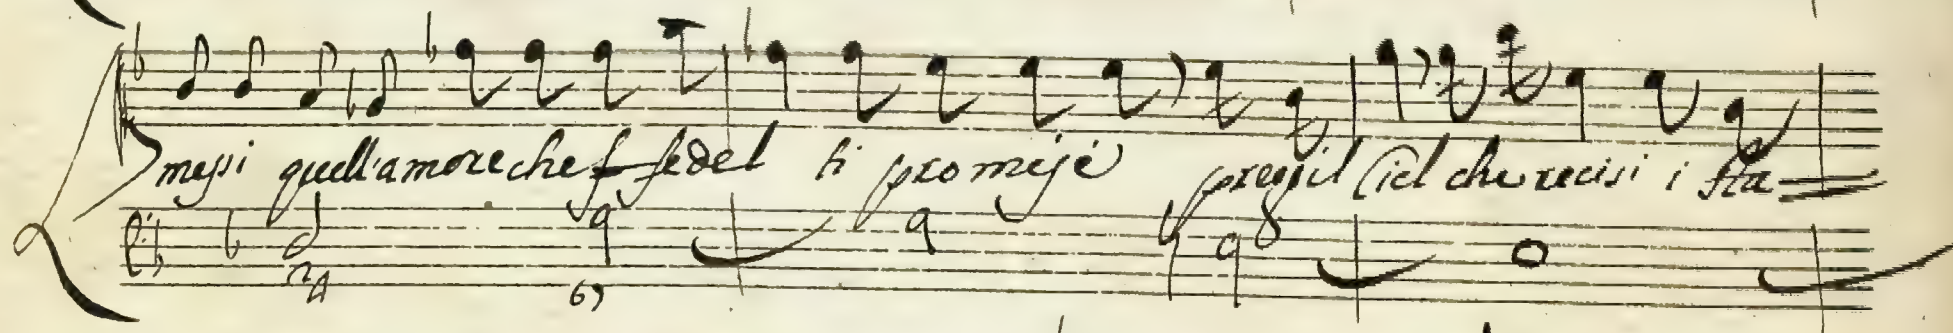 messi quell'amore che f fedel ti promise preggil Ciel che recisi i sta